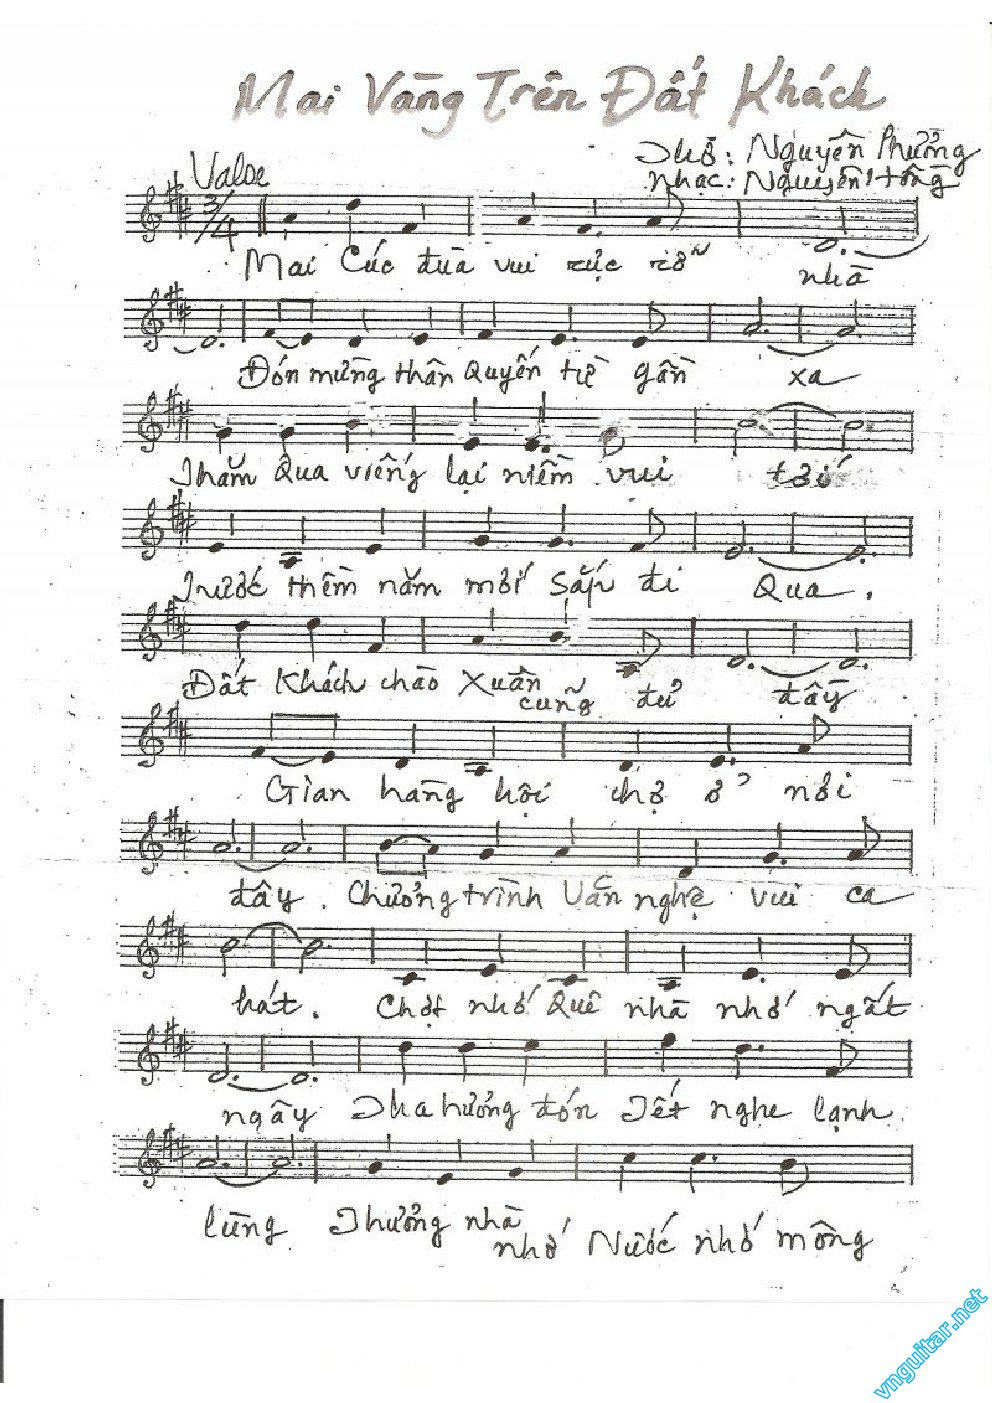 Mai Vàng Trên Đất Khách
Thơ: Nguyễn Phưởng
Valse
Nhạc: Nguyễn Hồng
3/4
Mai Cúc đua vui rực rỡ nhà
Đón mừng thân Quyến từ gần xa
Thăm Qua viếng lại niềm vui tới
Trước thềm năm mới Sắp đi Qua.
Đất Khách chào Xuân cũng đủ đầy
Gian hàng hội chợ ở nơi
đây. Chương trình Văn nghệ vui ca
hát. Chợt nhớ Quê nhà nhớ ngất
ngây Tha hương đón Tết nghe lạnh
lùng Thương nhà nhớ Nước nhớ mông
vnguitar.net